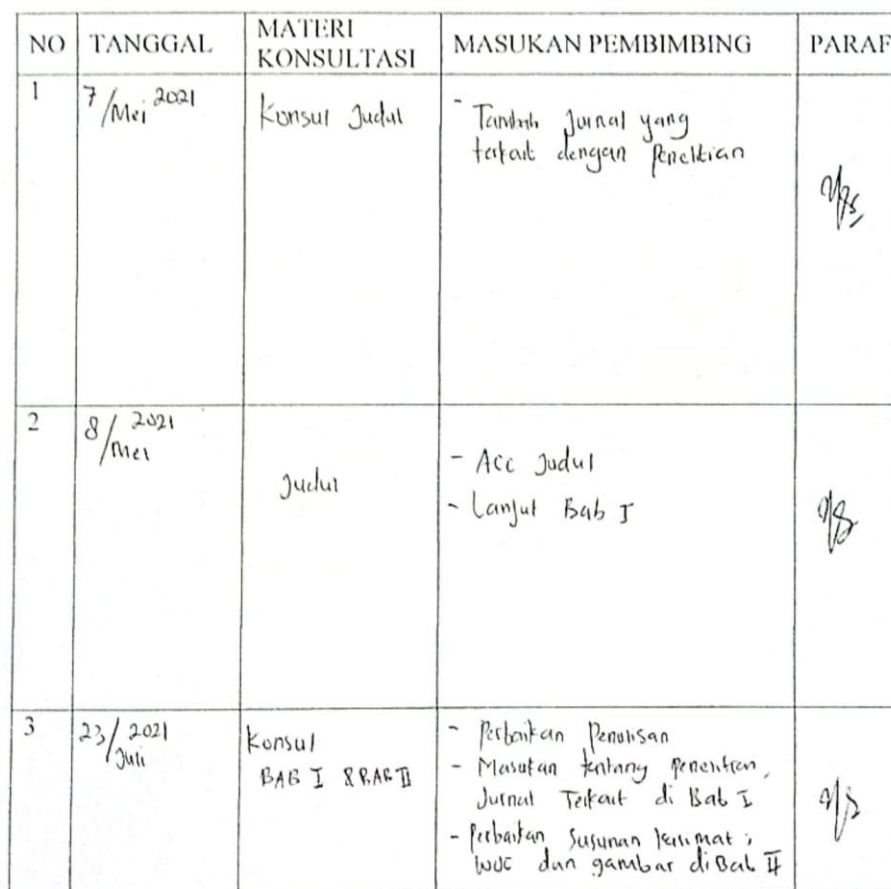 NO TANGGAL MATERI KONSULTASI MASUKAN PEMBIMBING PARAF
1 7/Mei 2021 Konsul Judul - Tambah Jurnal yang
terkait dengan Penelitian
2 8/Mei 2021 Judul - Acc Judul
- Lanjut Bab I
3 23/Juli 2021 Konsul - Perbaikan Penulisan
BAB I & BAB II - Masukan tentang penelitian,
Jurnal Terkait di Bab I
- Perbaikan Susunan kalimat,
WOC dan gambar di Bab II